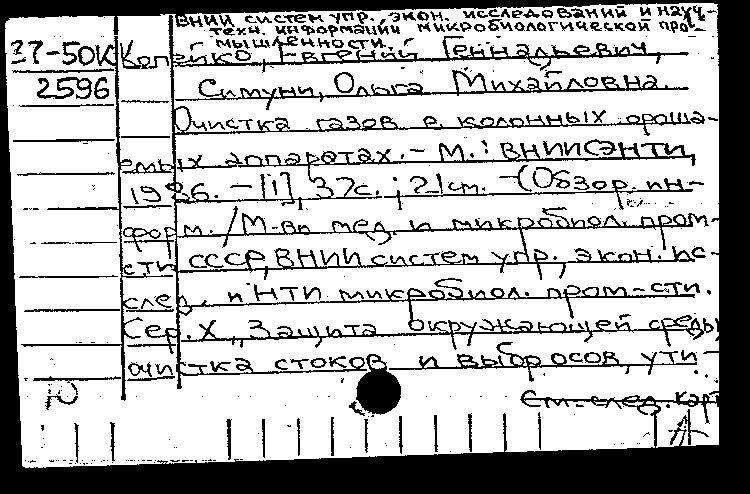 ВНИИ систем упр., экон. исследований и науч.-
техн. информации микробиологической про-
мышленности.
37-50К Копейко, Евгений Геннадьевич,
2596 Симуни, Ольга Михайловна.
Очистка газов в колонных ороша-
емых аппаратах. – М. : ВНИИСЭНТИ,
1986. – [1], 37с. ; 21см. – (Обзор. ин-
форм. / М-во мед. и микробиол. пром-
сти СССР, ВНИИ систем упр., экон. ис-
след. и НТИ микробиол. пром-сти.
Сер. X, „Защита окружающей среды
очистка стоков и выбросов, ути-
Ю См. след. карт